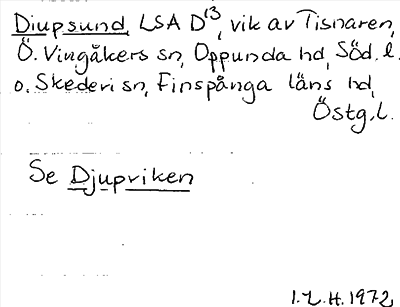 Diupsund, LSA D13, vik av Tisnaren,
Ö. Vingåkers sn, Oppunda hd, Söd. l.
o. Skedevi sn, Finspånga läns hd,
Östg. l.
Se Djupviken
I.L.H. 1972